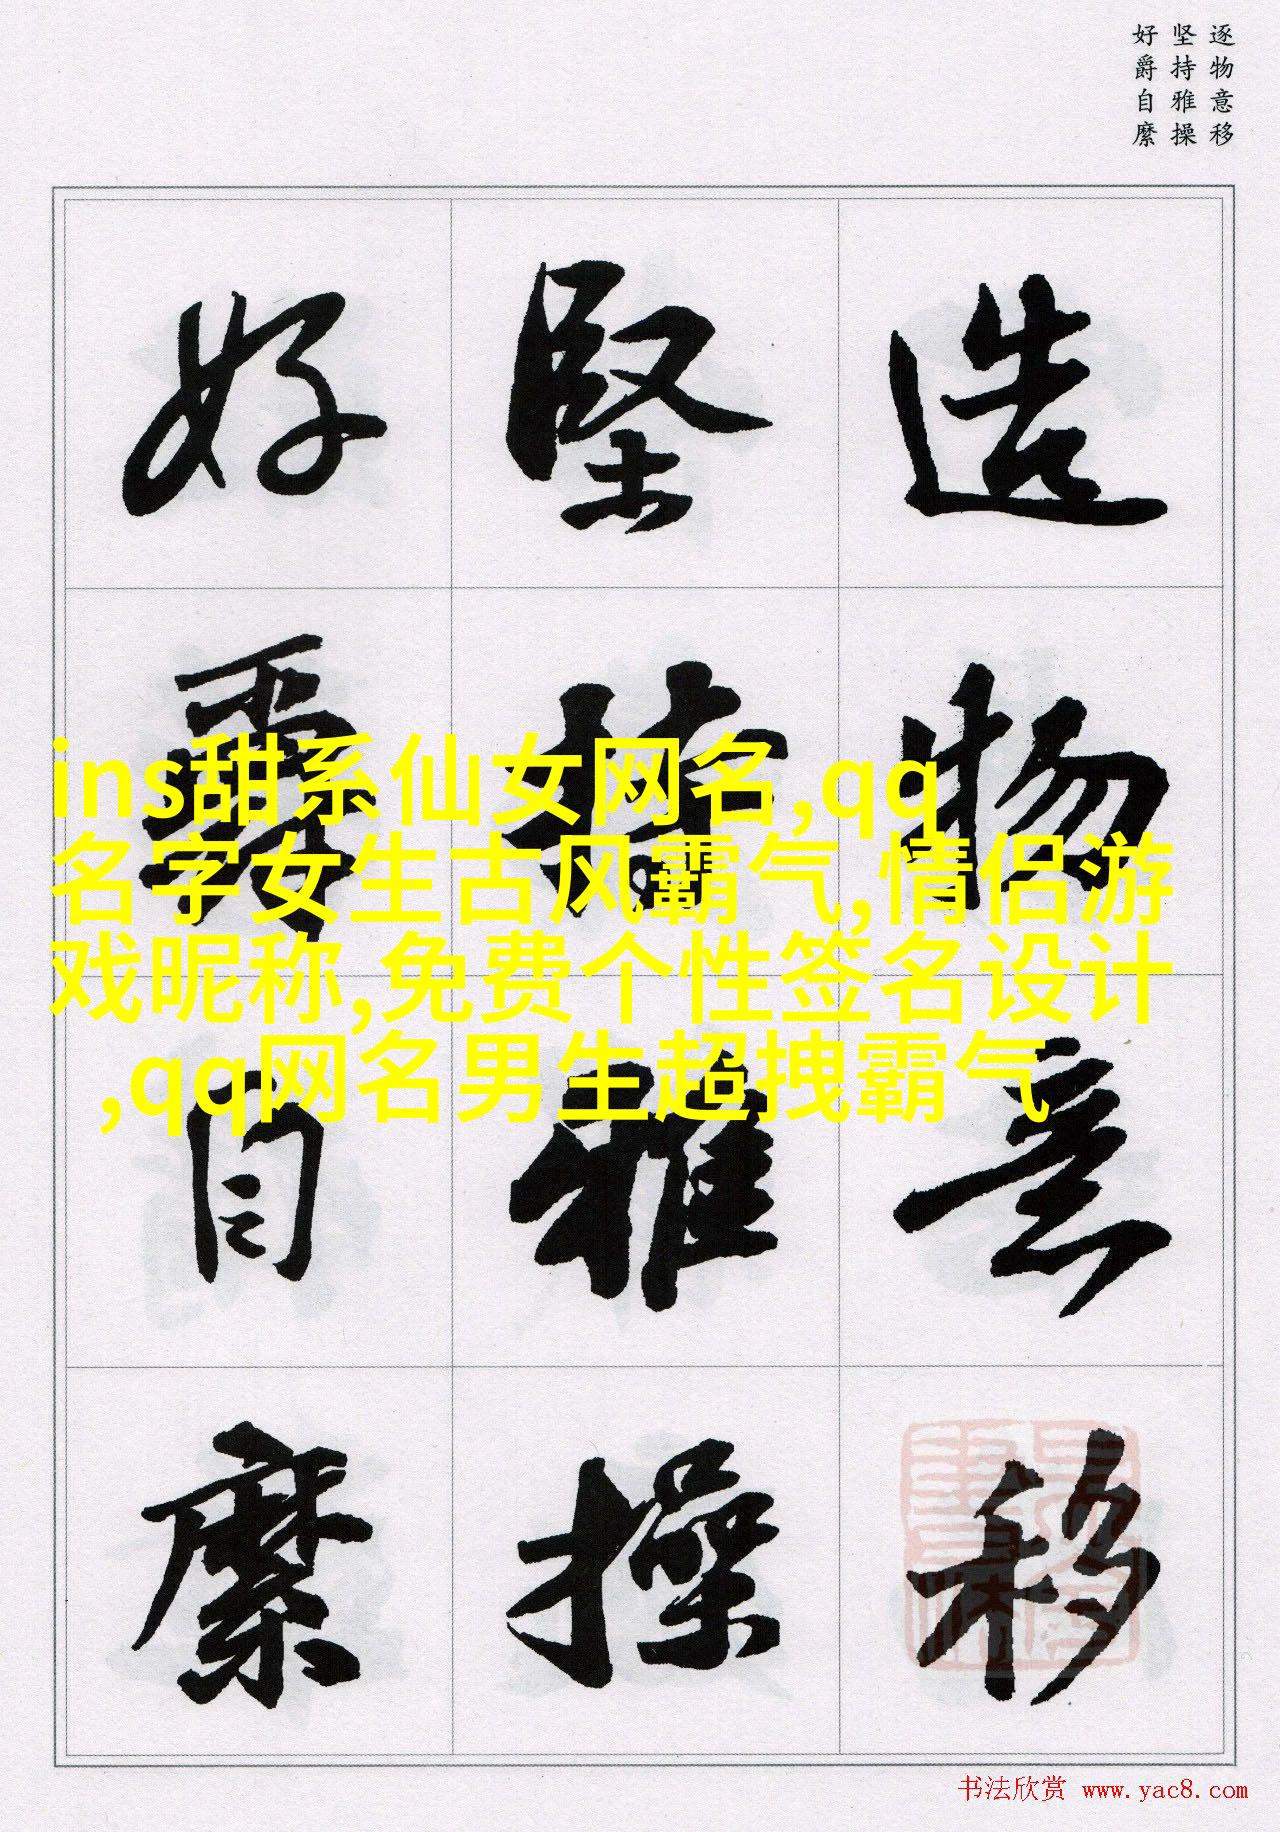 逐物意移
坚持雅操
好爵自縻
造物意移
堅持雅操
好爵自縻
ins甜系仙女网名,qq
名字女生古风霸气,情侣游
戏昵称,免费个性签名设计
,qq网名男生超拽霸气
书法欣赏 www.yac8.com